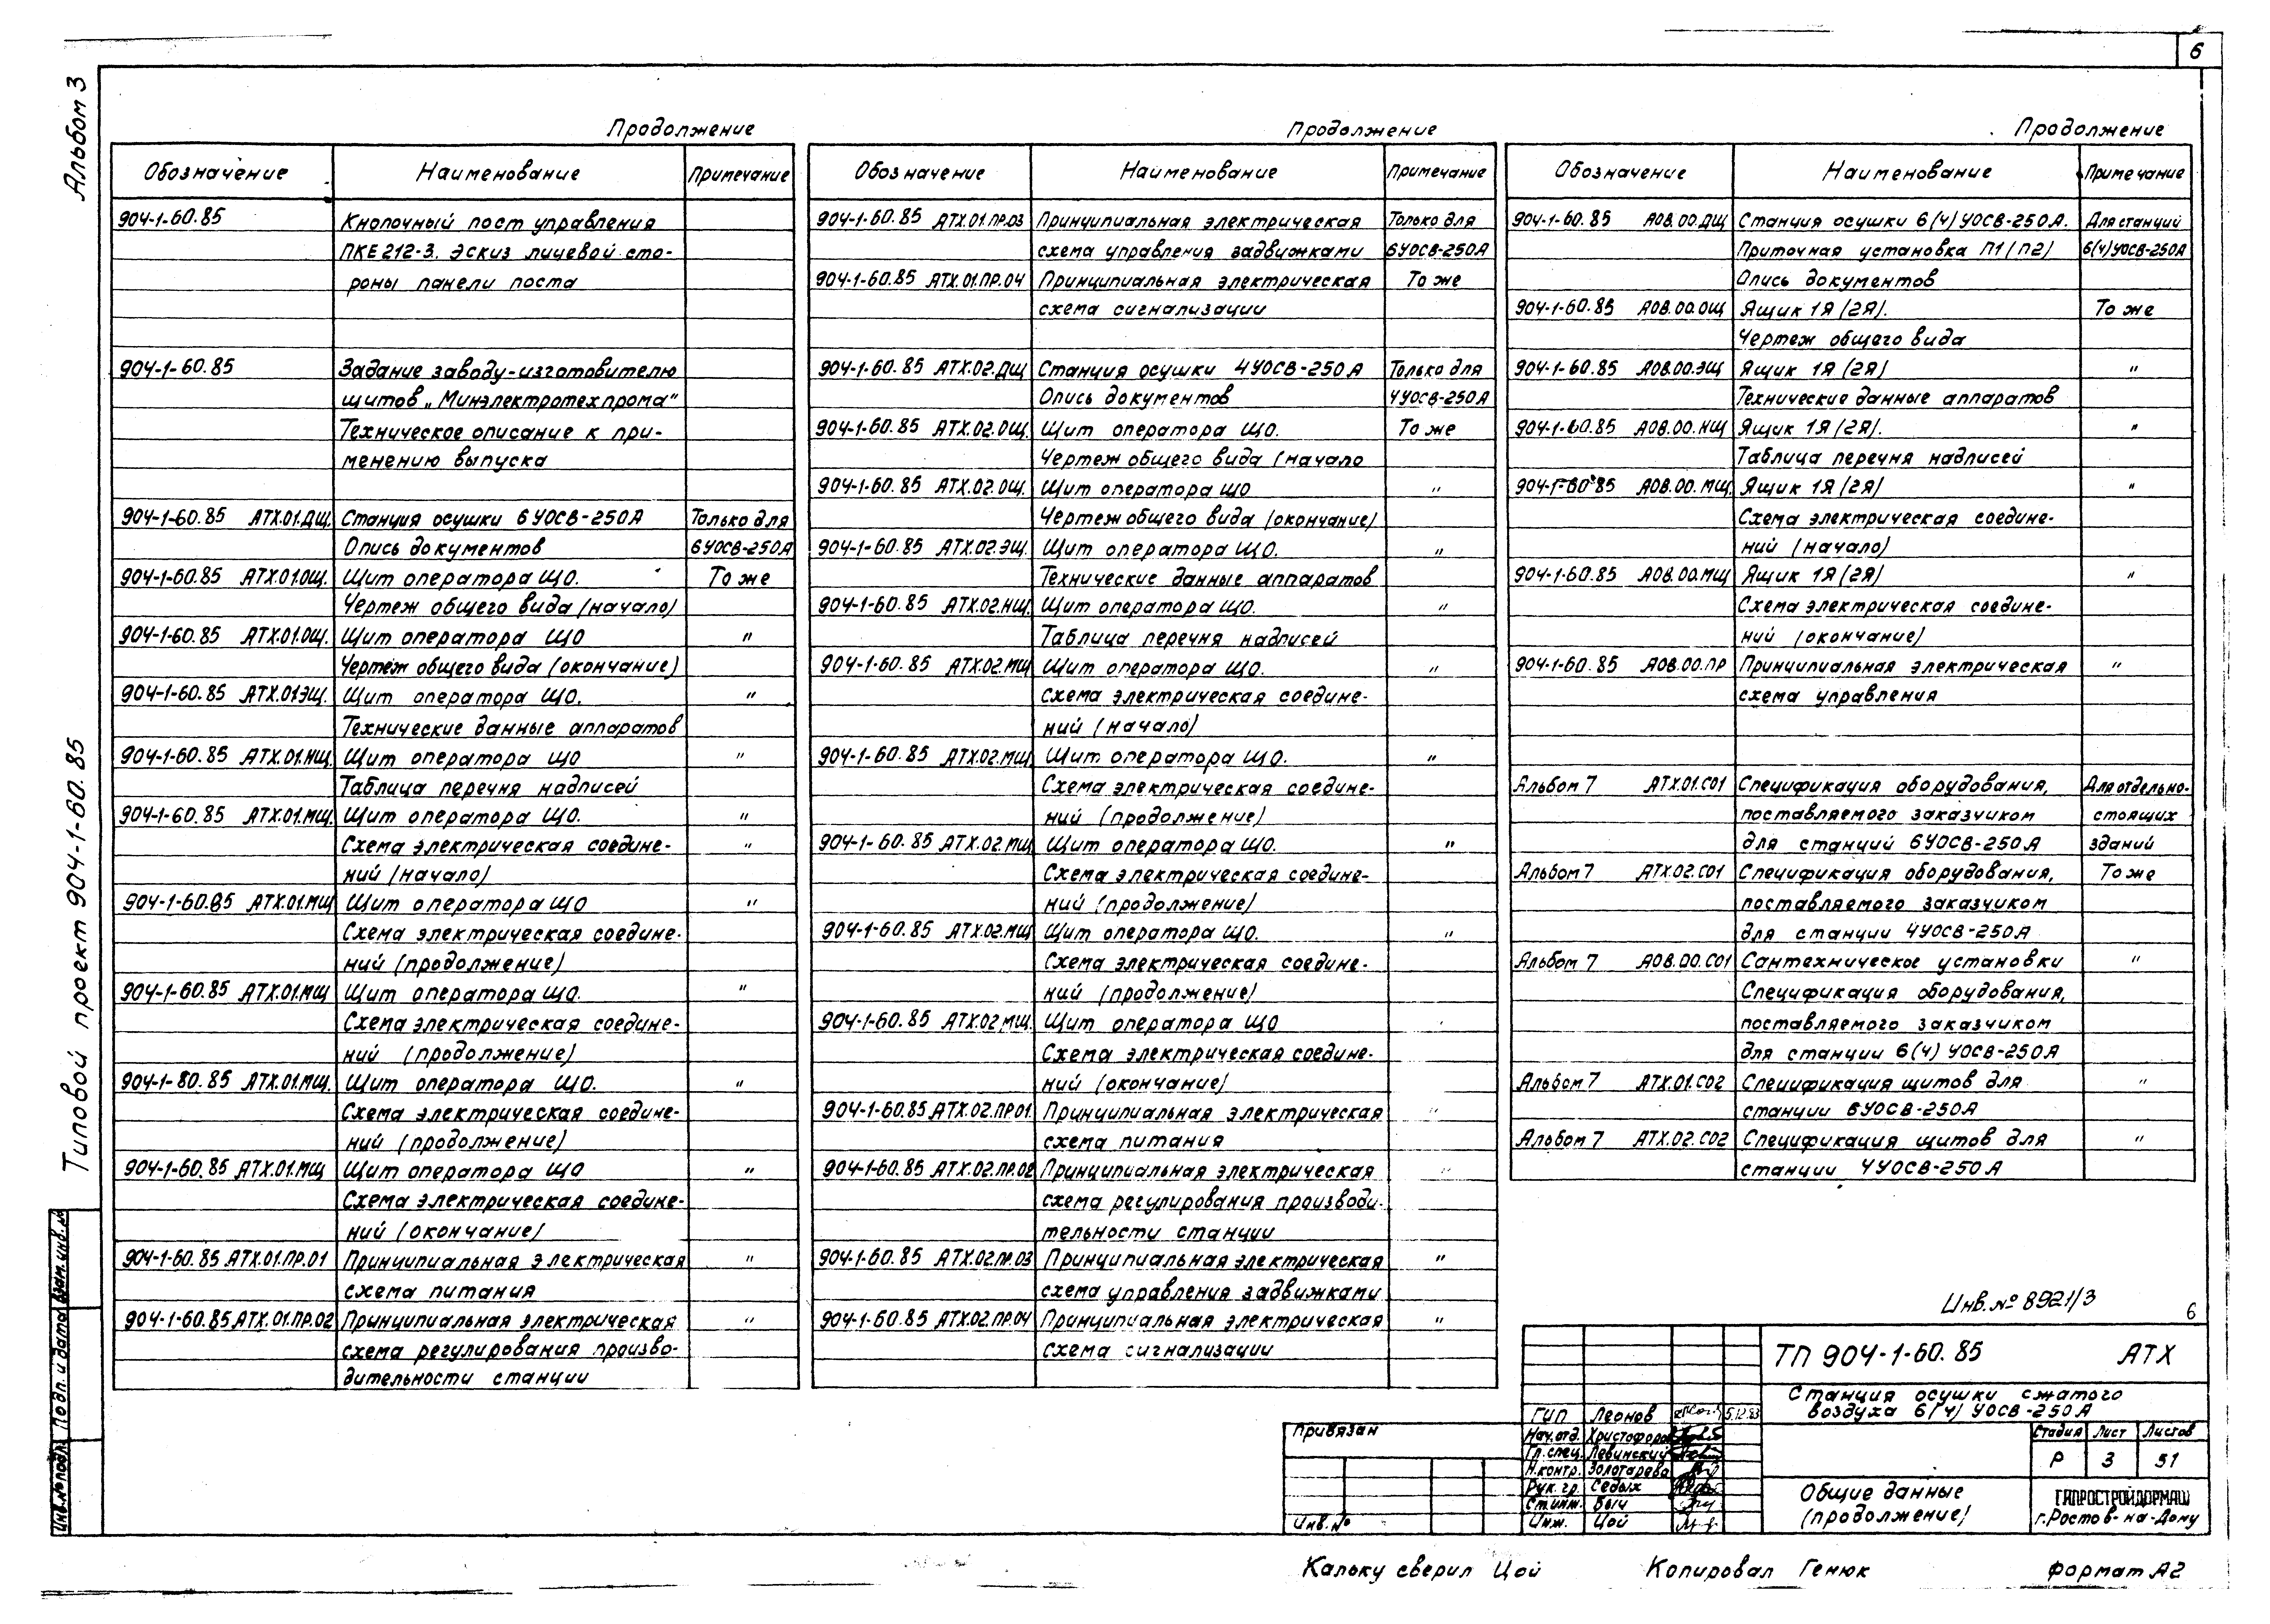 6
Альбом 3
Типовой проект 904-1-60.85
Продолжение
Обозначение Наименование Примечание
904-1-60.85 Кнопочный пост управления
ПКЕ 212-3. Эскиз лицевой сто-
роны панели поста
904-1-60.85 Задание заводу-изготовителю
щитов „Минэлектротехпрома"
Техническое описание к при-
менению выпуска
904-1-60.85 АТХ.01.ДЩ. Станция осушки 6УОСВ-250А Только для
Опись документов 6УОСВ-250А
904-1-60.85 АТХ.01.ОЩ. Щит оператора ЩО. То же
Чертеж общего вида (начало)
904-1-60.85 АТХ.01.ОЩ. Щит оператора ЩО "
Чертеж общего вида (окончание)
904-1-60.85 АТХ.01ЭЩ. Щит оператора ЩО. "
Технические данные аппаратов
904-1-60.85 АТХ.01.НЩ. Щит оператора ЩО "
Таблица перечня надписей
904-1-60.85 АТХ.01.МЩ. Щит оператора ЩО. "
Схема электрическая соедине- "
ний (начало)
904-1-60.85 АТХ.01.МЩ Щит оператора ЩО "
Схема электрическая соедине-
ний (продолжение)
904-1-60.85 АТХ.01.МЩ Щит оператора ЩО. "
Схема электрическая соедине-
ний (продолжение)
904-1-80.85 АТХ.01.МЩ. Щит оператора ЩО. "
Схема электрическая соедине-
ний (продолжение)
904-1-60.85 АТХ.01.МЩ Щит оператора ЩО "
Схема электрическая соедине-
ний (окончание)
904-1-60.85 АТХ.01.ПР.01 Принципиальная электрическая "
схема питания
904-1-60.85.АТХ.01.ПР.02 Принципиальная электрическая "
схема регулирования произво-
дительности станции
Продолжение
Обозначение Наименование Примечание
904-1-60.85 АТХ.01.ПР.03 Принципиальная электрическая Только для
схема управления задвижками 6УОСВ-250А
904-1-60.85 АТХ.01.ПР.04 Принципиальная электрическая То же
схема сигнализации
904-1-60.85 АТХ.02.ДЩ Станция осушки 4УОСВ-250А Только для
Опись документов 4УОСВ-250А
904-1-60.85 АТХ.02.ОЩ. Щит оператора ЩО. То же
Чертеж общего вида (начало
904-1-60.85 АТХ.02.ОЩ. Щит оператора ЩО "
Чертеж общего вида (окончание)
904-1-60.85 АТХ.02.ЭЩ. Щит оператора ЩО. "
Технические данные аппаратов
904-1-60.85 АТХ.02.НЩ. Щит оператора ЩО. "
Таблица перечня надписей
904-1-60.85 АТХ.02.МЩ Щит оператора ЩО. "
Схема электрическая соедине-
ний (начало)
904-1-60.85 АТХ.02.МЩ Щит оператора ЩО. "
Схема электрическая соедине-
ний (продолжение)
904-1-60.85 АТХ.02.МЩ Щит оператора ЩО. "
Схема электрическая соедине-
ний (продолжение)
904-1-60.85 АТХ.02.МЩ Щит оператора ЩО. "
Схема электрическая соедине-
ний (продолжение)
904-1-60.85 АТХ.02 МЩ. Щит оператора ЩО
Схема электрическая соедине-
ний (окончание)
904-1-60.85 АТХ.02.ПР.01. Принципиальная электрическая "
схема питания
904-1-60.85 АТХ.02.ПР.02 Принципиальная электрическая "
схема регулирования производи-
тельности станции
904-1-60.85 АТХ.02.ПР.03 Принципиальная электрическая "
схема управления задвижками
904-1-60.85 АТХ.02.ПР.04 Принципиальная электрическая "
схема сигнализации
Продолжение
Обозначение Наименование Примечание
904-1-60.85 АОВ.00.ДЩ Станция осушки 6(4)УОСВ-250А. Для станций
Приточная установка П1(П2) 6(4)УОСВ-250А
Опись документов
904-1-60.85 АОВ.00.ОЩ Ящик 1Я(2Я). То же
Чертеж общего вида
904-1-60.85 АОВ.00.ЭЩ Ящик 1Я(2Я) "
Технические данные аппаратов
904-1-60.85 АОВ.00.НЩ Ящик 1Я(2Я). "
Таблица перечня надписей
904-1-60.85 АОВ.00.МЩ. Ящик 1Я(2Я) "
Схема электрическая соедине-
ний (начало)
904-1-60.85 АОВ.00.МЩ Ящик 1Я(2Я) "
Схема электрическая соедине-
ний (окончание)
904-1-60.85 АОВ.00.ПР Принципиальная электрическая "
схема управления
Альбом 7 АТХ.01.СО1 Спецификация оборудования, Для отдельно-
поставляемого заказчиком стоящих
для станций 6УОСВ-250А зданий
Альбом 7 АТХ.02.СО1 Спецификация оборудования, То же
поставляемого заказчиком
для станции 4УОСВ-250А
Альбом 7 АОВ.00.СО1 Сантехническое установки "
Спецификация оборудования,
поставляемого заказчиком
для станции 6(4)УОСВ-250А
Альбом 7 АТХ.01.СО2 Спецификация щитов для "
станции 6УОСВ-250А
Альбом 7 АТХ.02.СО2 Спецификация щитов для "
станции 4УОСВ-250А
Инв.№ 8921/3
6
ТП 904-1-60.85 АТХ
Станция осушки сжатого
воздуха 6(4)УОСВ-250А
Стадия Лист Листов
Р 3 51
Общие данные
(продолжение)
ГИПРОСТРОЙДОРМАШ
г.Ростов-на-Дону
ГИП Леонов 5.12.83
Нач.отд. Христофоров
Гл.спец. Левинский
Н.контр. Золотарева
Рук.гр. Седых
Ст.инж. Быч
Инж. Цой
Привязан
Инв.№
Инв.№ подл. Подп. и дата Взам.инв.№
Кальку сверил Цой Копировал Генюк Формат А2